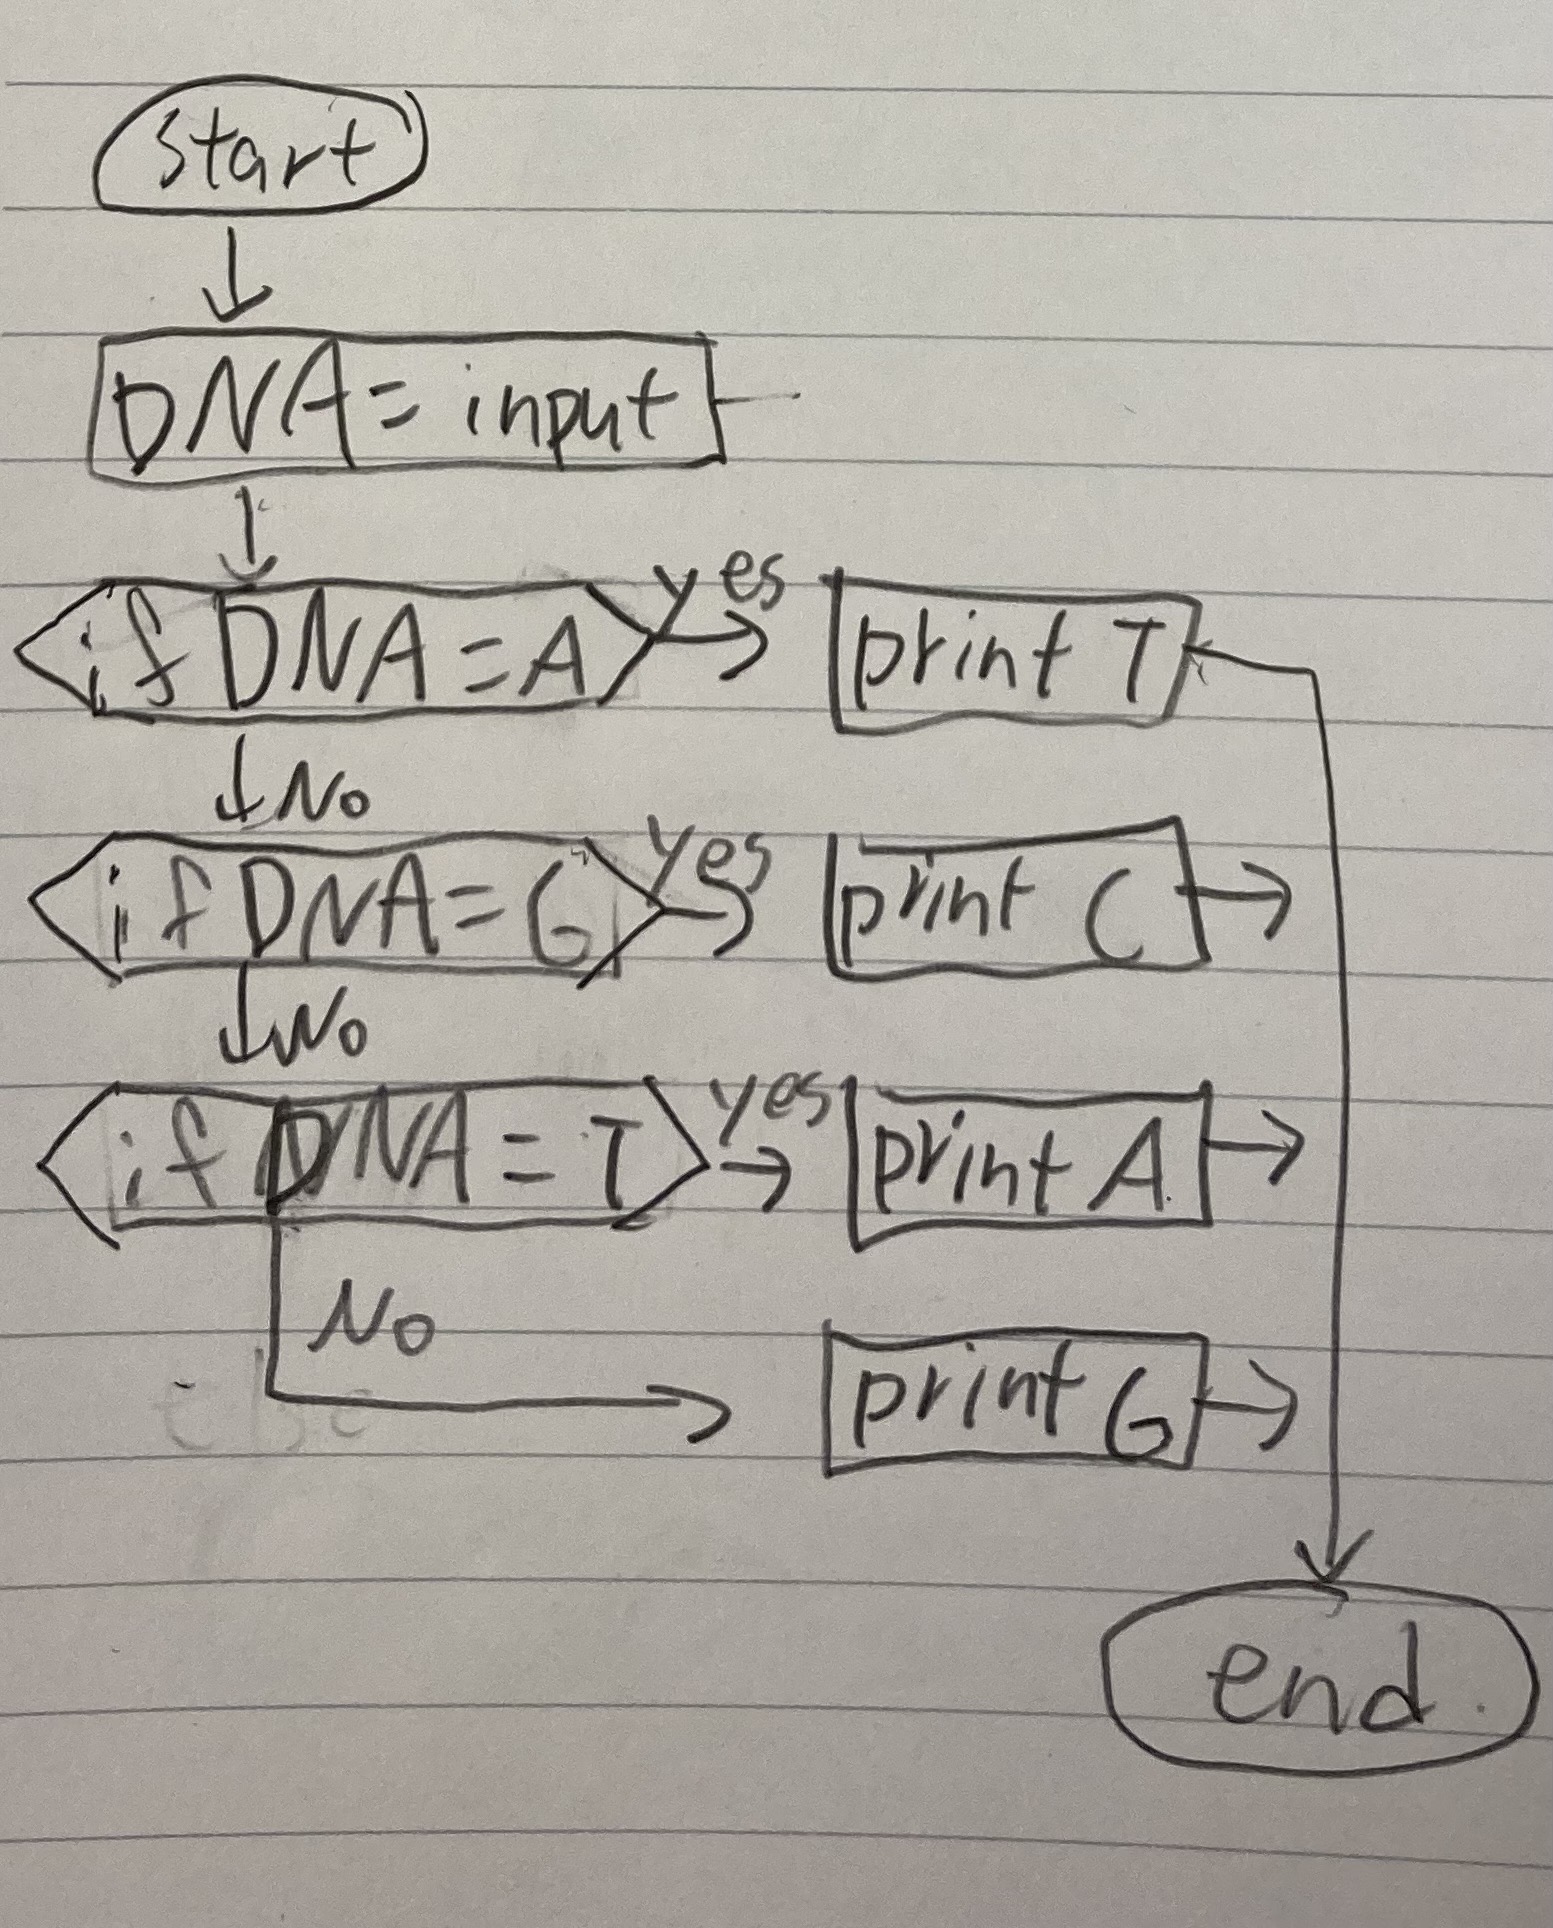 start
DNA = input
if DNA = A
yes
print T
No
if DNA = G
yes
print C
No
if DNA = T
yes
print A
No
else
print G
end